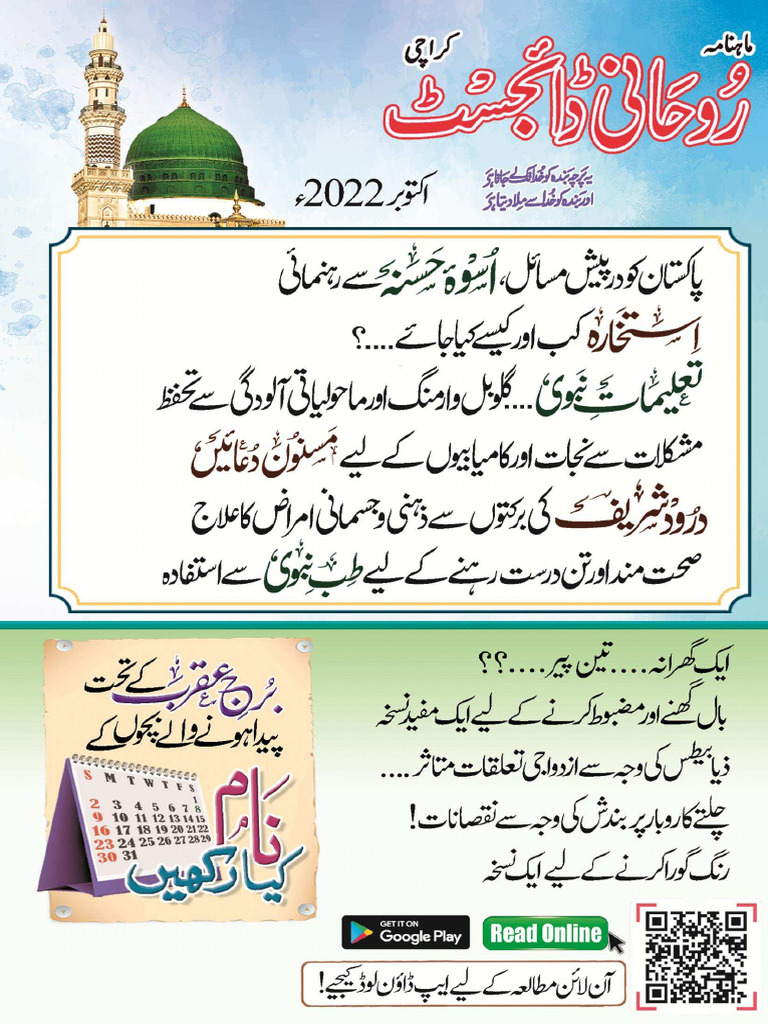 ماہنامہ
روحانی ڈائجسٹ
کراچی
یہ پرچہ بندہ کو خدا تک لے جاتا ہے
اور بندہ کو خدا سے ملا دیتا ہے
اکتوبر 2022ء
پاکستان کو درپیش مسائل، اُسْوۂ حَسَنہ سے رہنمائی
اِستخارہ کب اور کیسے کیا جائے....؟
تعلیماتِ نبویؐ....گلوبل وارمنگ اور ماحولیاتی آلودگی سے تحفظ
مشکلات سے نجات اور کامیابیوں کے لیے مَسنُون دُعائیں
درُود شریف کی برکتوں سے ذہنی و جسمانی امراض کا علاج
صحت مند اور تن درست رہنے کے لیے طِبِّ نبویؐ سے استفادہ
ایک گھرانہ....تین پیر....؟؟
بال گھنے اور مضبوط کرنے کے لیے ایک مفید نسخہ
ذیابیطس کی وجہ سے ازدواجی تعلقات متاثر....
چلتے کاروبار پر بندش کی وجہ سے نقصانات!
رنگ گورا کرنے کے لیے ایک نسخہ
بُرجِ عقرب کے تحت
پیدا ہونے والے بچوں کے
نام
کیا رکھیں
S M T W T F S
1
2 3 4 5 6 7 8
9 10 11 12 13 14 15
16 17 18 19 20 21 22
23 24 25 26 27 28 29
30 31
GET IT ON
Google Play
Read Online
آن لائن مطالعہ کے لیے ایپ ڈاؤن لوڈ کیجیے!